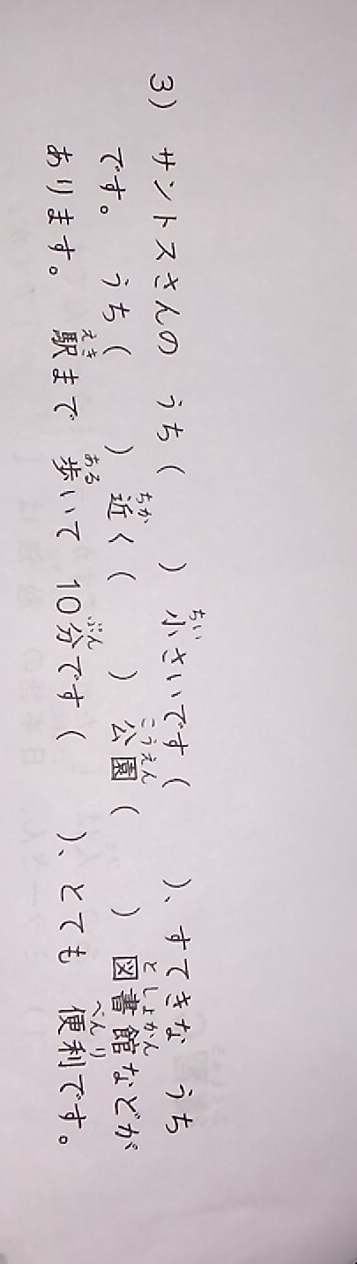 3) サントスさんの うち(　　) 小さいです(　　)、すてきな うち
です。 うち(　　) 近く(　　) 公園(　　) 図書館などが
あります。 駅まで 歩いて 10分です(　　)、とても 便利です。